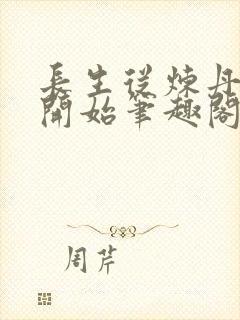 長生從煉丹
開始筆趣閣
周芹